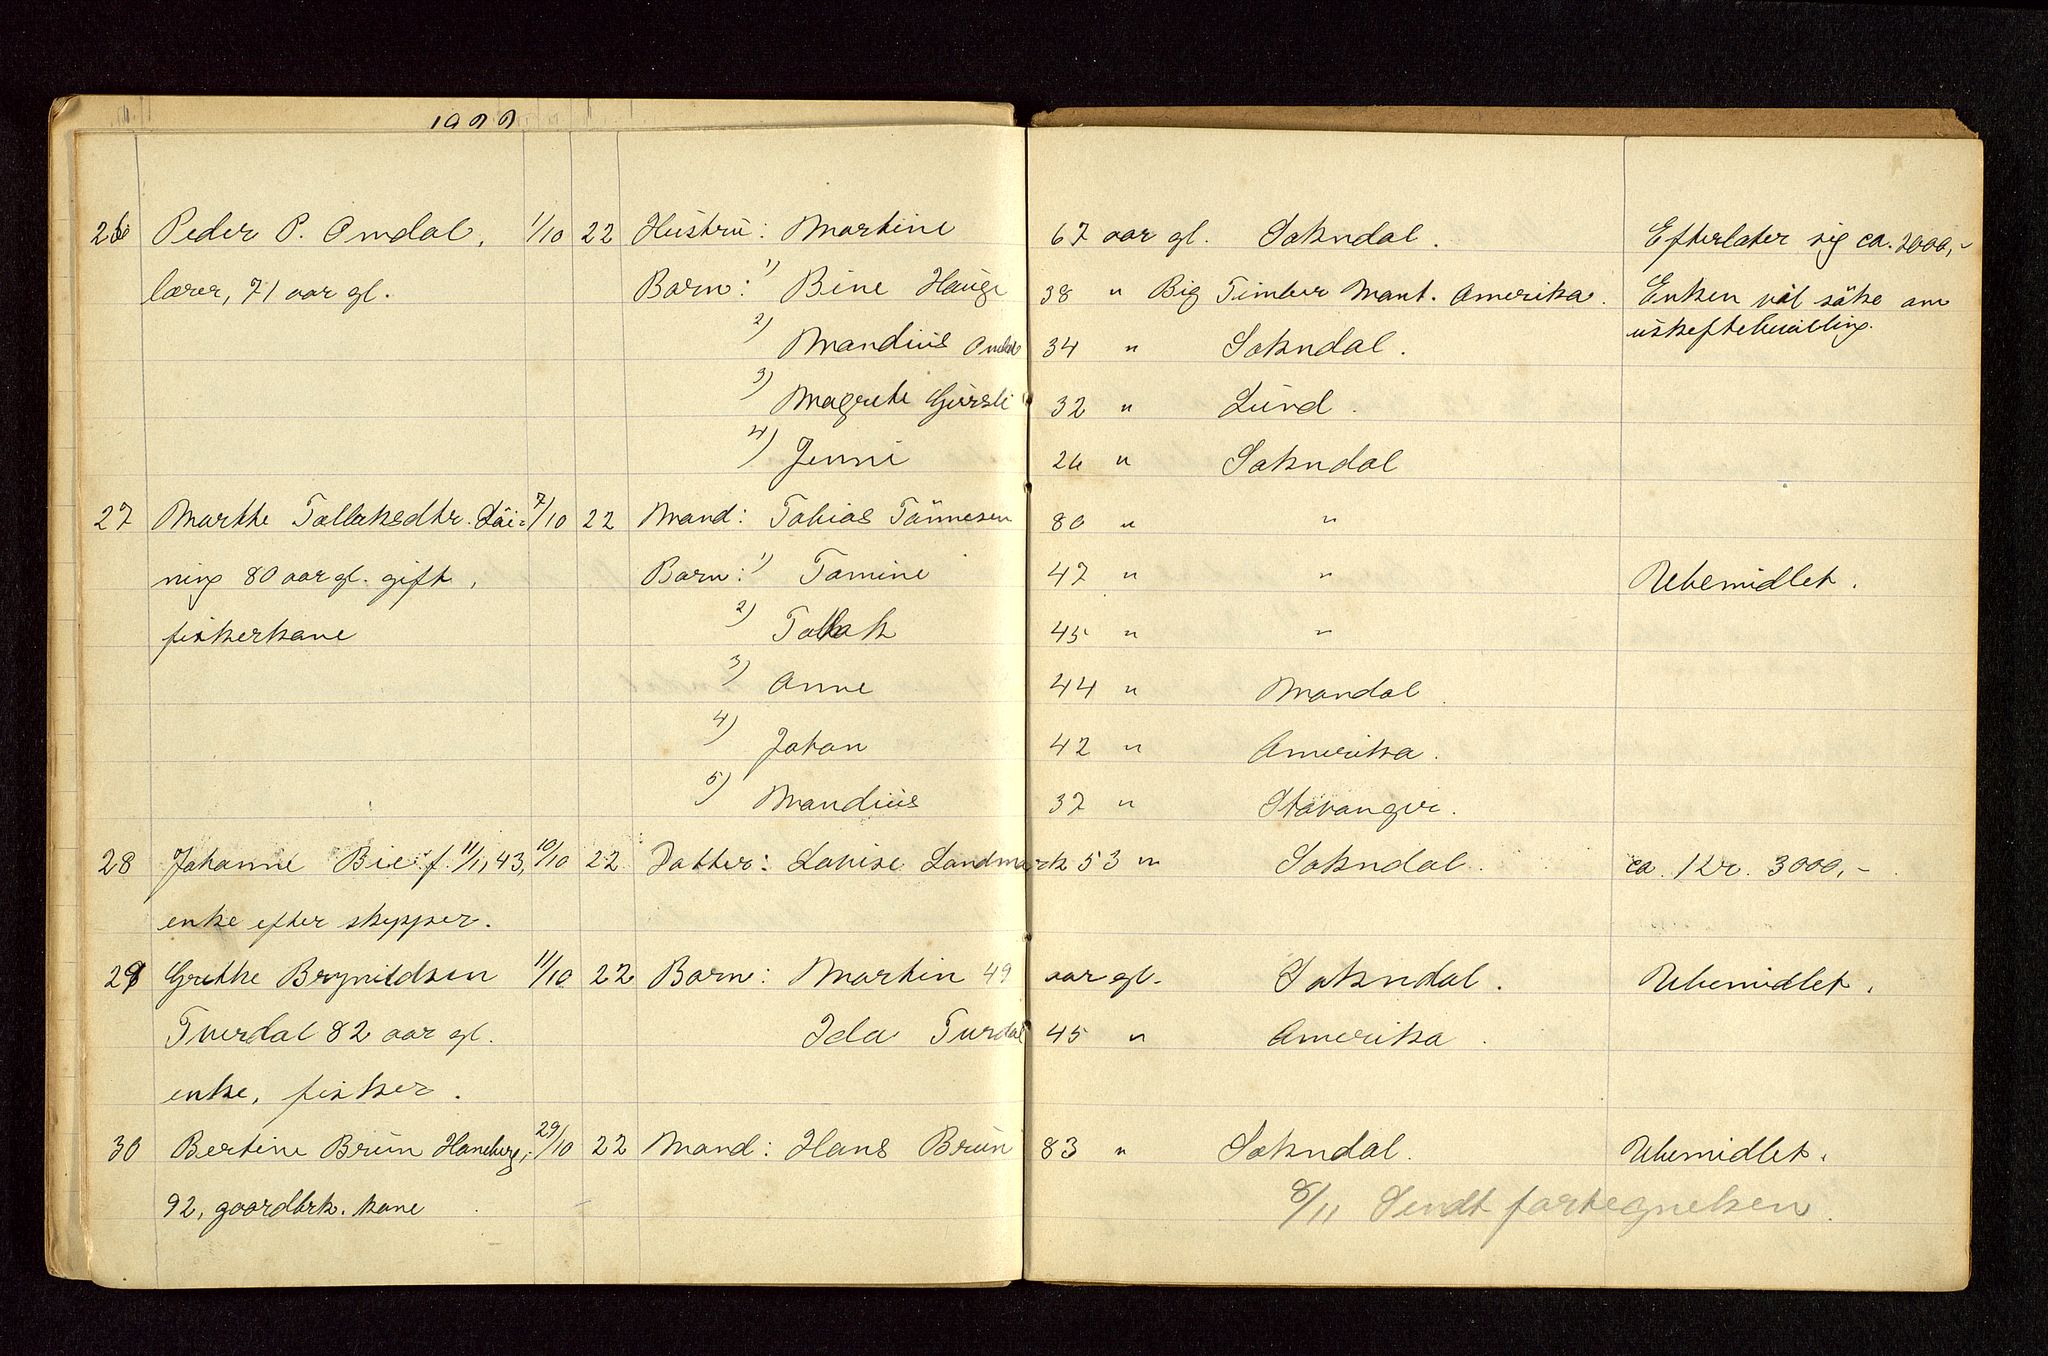 1922
26 Peder P. Omdal, 1/10 22 Hustru: Martine 67 aar gl. Sokndal. Efterlater sig ca. 2000,-
lærer, 71 aar gl. Barn: 1) Bine Hauge 38 " Big Timber Mont. Amerika. Enken vil söke om
2) Mandius Omdal 34 " Sokndal. uskiftebevilling.
3) Magrete Gursli 32 " Lund.
4) Jenni 26 " Sokndal
27 Marthe Tollaksdtr. Löi- 7/10 22 Mand: Tobias Tönnesen 80 " "
ning 80 aar gl. gift, Barn: 1) Tomine 47 " " Ubemidlet.
fiskerkone 2) Tollak 45 " "
3) Anne 44 " Mandal.
4) Johan 42 " Amerika.
5) Mandius 37 " Stavanger.
28 Johanne Bie f. 11/1, 43, 10/10 22 Datter: Lovise Landmark 53 " Sokndal. ca. 1 Kr. 3000,-
enke efter skipper.
29 Grethe Brynildsen 11/10 22 Barn: Martin 49 aar gl. Sokndal. Ubemidlet.
Tverdal 82 aar gl. Ida Turdal 45 " Amerika.
enke, fisker.
30 Bertine Brun Haneberg, 29/10 22 Mand: Hans Brun 83 " Sokndal. Ubemidlet.
92, gaardbrk. kone
8/11 Sendt fortegnelsen.